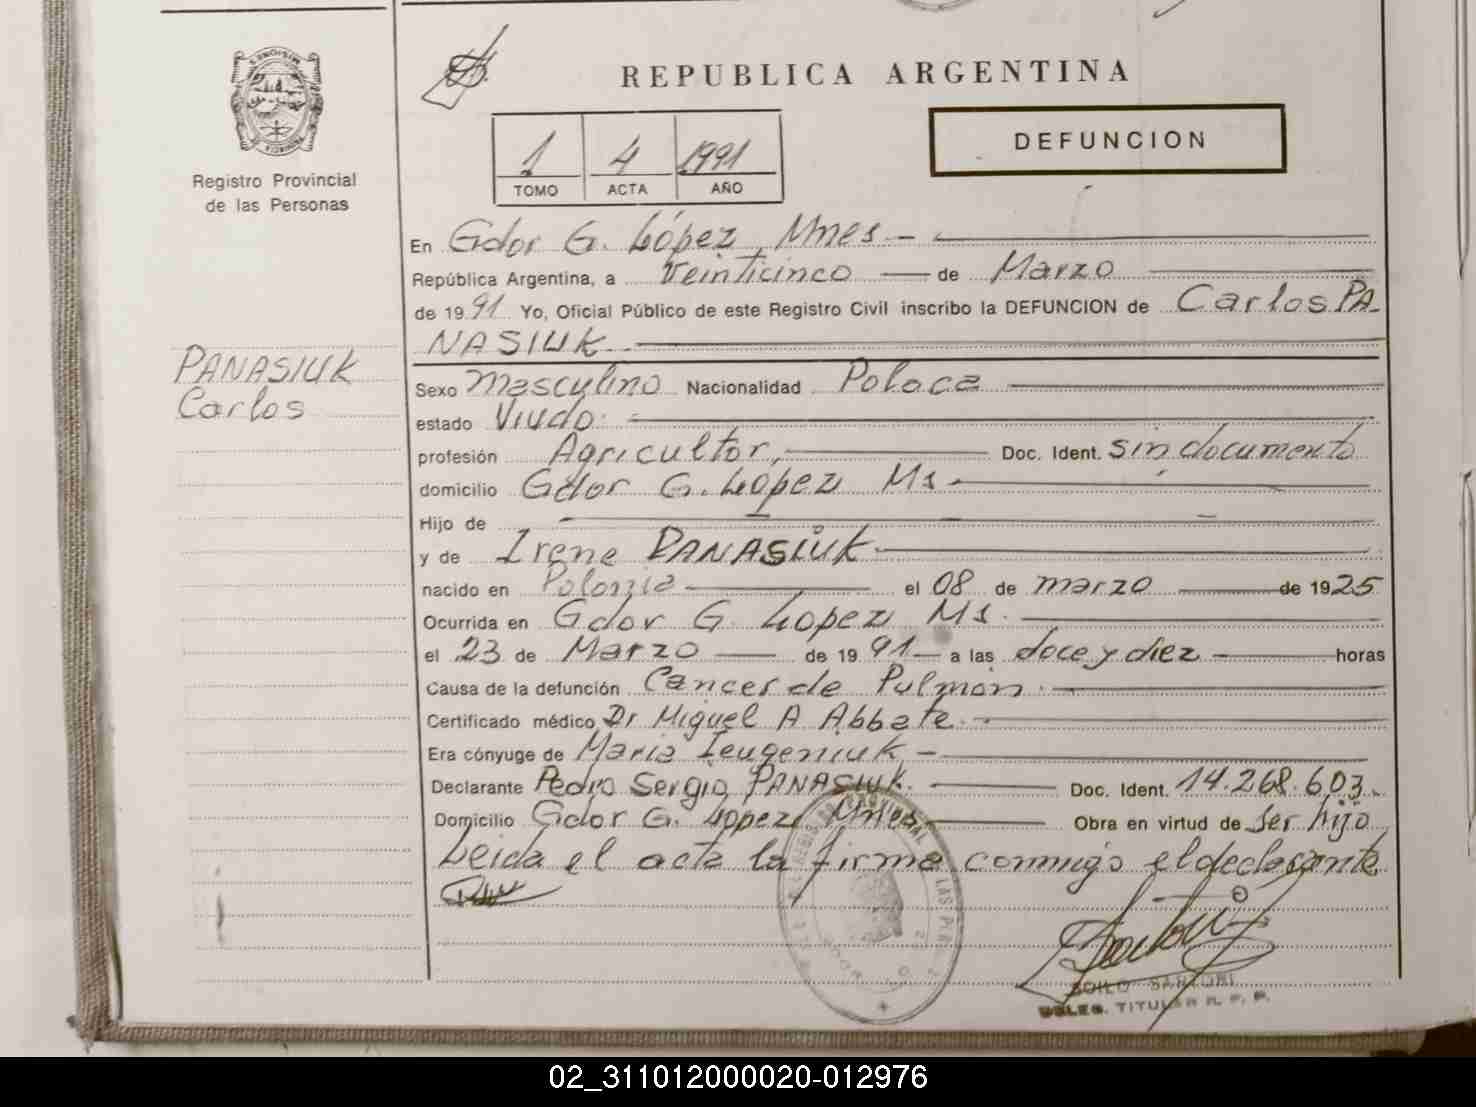 REPUBLICA ARGENTINA
DEFUNCION
1 4 1991
TOMO ACTA AÑO
Registro Provincial
de las Personas
PANASIUK
Carlos
En Gdor G. López, Mnes -
República Argentina, a Veinticinco de Marzo
de 1991 Yo, Oficial Público de este Registro Civil inscribo la DEFUNCION de Carlos PA
NASIUK
Sexo masculino Nacionalidad Polaca
estado Viudo
profesión Agricultor, Doc. Ident. sin documento
domicilio Gdor G. Lopez Ms
Hijo de
y de Irene PANASIUK
nacido en Polonia el 08 de marzo de 1925
Ocurrida en Gdor G. Lopez Ms.
el 23 de Marzo de 1991 a las doce y diez horas
Causa de la defunción Cancer de Pulmón
Certificado médico Dr Miguel A Abbate
Era cónyuge de Maria Ieugeniuk -
Declarante Pedro Sergio PANASIUK. Doc. Ident. 14.268.603
Domicilio Gdor G. Lopez Mnes Obra en virtud de ser hijo
Leida el acta la firma conmigo el declarante
ZOILO SARTORI
DELEG. TITULAR R. P. P.
02_311012000020-012976